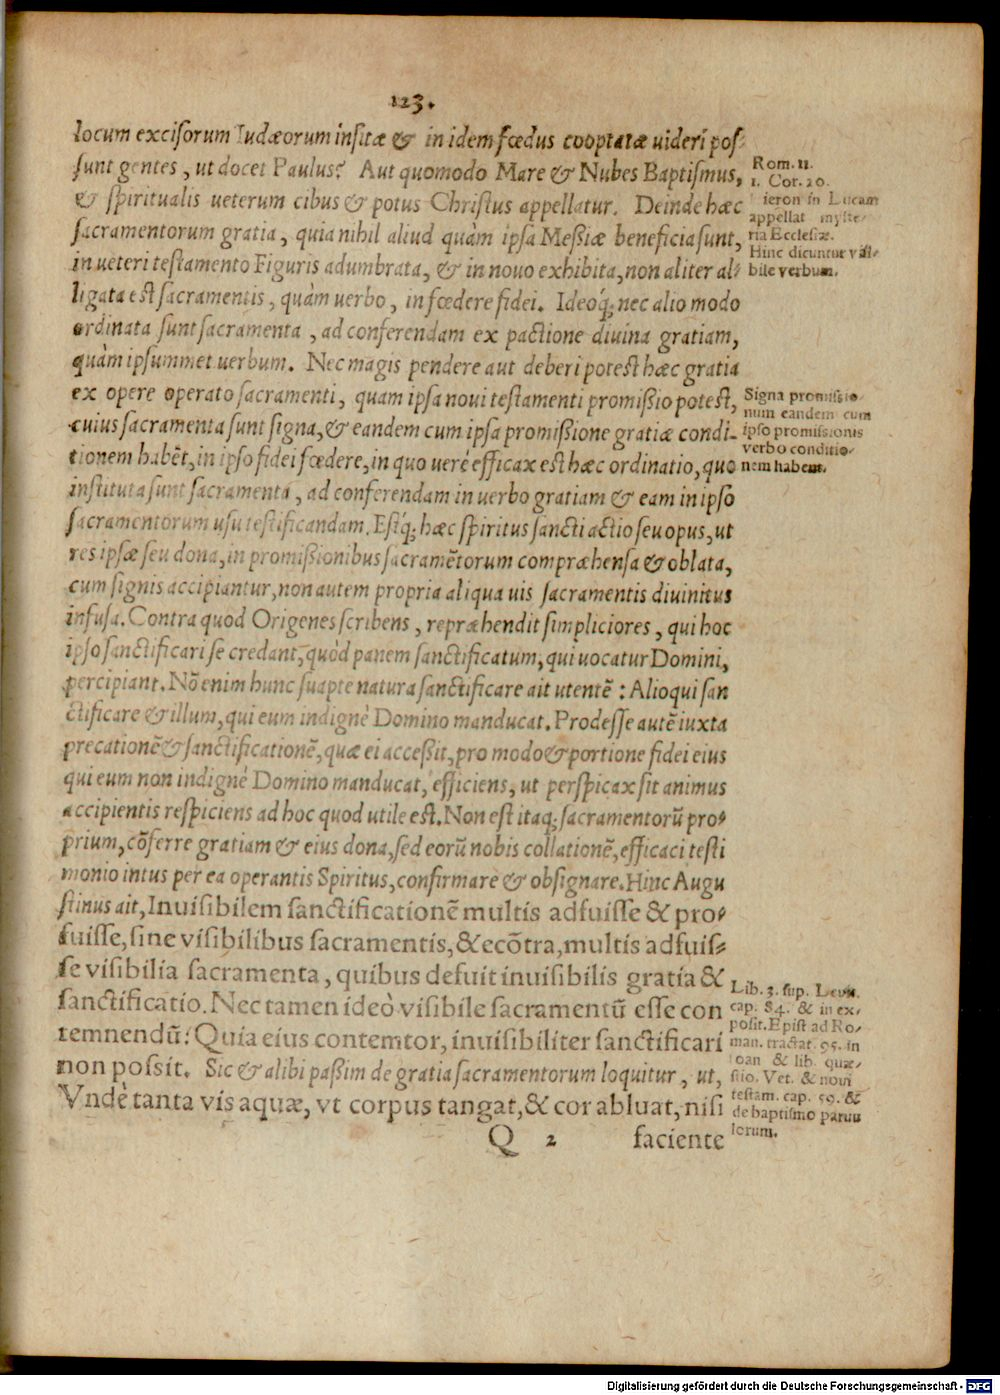 123.
locum excisorum Iudæorum insitæ & in idem fœdus cooptatæ uideri pos-
sunt gentes, ut docet Paulus? Aut quomodo Mare & Nubes Baptismus,
& spiritualis ueterum cibus & potus Christus appellatur. Deinde hæc
sacramentorum gratia, quia nihil aliud quàm ipsa Meßiæ beneficia sunt,
in ueteri testamento Figuris adumbrata, & in nouo exhibita, non aliter al-
ligata est sacramentis, quàm uerbo, in fœdere fidei. Ideoq; nec alio modo
ordinata sunt sacramenta, ad conferendam ex pactione diuina gratiam,
quàm ipsummet uerbum. Nec magis pendere aut deberi potest hæc gratia
ex opere operato sacramenti, quam ipsa noui testamenti promißio potest,
cuius sacramenta sunt signa, & eandem cum ipsa promißione gratiæ condi-
tionem habēt, in ipso fidei fœdere, in quo uerè efficax est hæc ordinatio, quo
instituta sunt sacramenta, ad conferendam in uerbo gratiam & eam in ipso
sacramentorum usu testificandam. Estq; hæc spiritus sancti actio seu opus, ut
res ipsæ seu dona, in promißionibus sacramētorum compræhensa & oblata,
cum signis accipiantur, non autem propria aliqua uis sacramentis diuinitus
infusa. Contra quod Origenes scribens, repræhendit simpliciores, qui hoc
ipso sanctificari se credant, quòd panem sanctificatum, qui uocatur Domini,
percipiant. Nō enim hunc suapte natura sanctificare ait utentē: Alioqui san
ctificare & illum, qui eum indignè Domino manducat. Prodesse autē iuxta
precationē & sanctificationē, quæ ei acceßit, pro modo & portione fidei eius
qui eum non indignè Domino manducat, efficiens, ut perspicax sit animus
accipientis respiciens ad hoc quod utile est. Non est itaq; sacramentorū pro-
prium, cōferre gratiam & eius dona, sed eorū nobis collationē, efficaci testi
monio intus per ea operantis Spiritus, confirmare & obsignare. Hinc Augu
stinus ait, Inuisibilem sanctificationē multis adfuisse & pro-
fuisse, sine visibilibus sacramentis, & ecōtra, multis adfuis-
se visibilia sacramenta, quibus defuit inuisibilis gratia &
sanctificatio. Nec tamen ideò visibile sacramentū esse con
temnendū: Quia eius contemtor, inuisibiliter sanctificari
non possit. Sic & alibi paßim de gratia sacramentorum loquitur, ut,
Vndè tanta vis aquæ, vt corpus tangat, & cor abluat, nisi
Q 2 faciente
Rom. 11.
1. Cor. 20.
ieron in Lucam
appellat myste-
ria Ecclesiæ.
Hinc dicuntur visi-
bile verbum.
Signa promissio-
num eandem cum
ipso promissionis
verbo conditio-
nem habent.
Lib. 3. sup. Leuit.
cap. 84. & in ex-
posit. Epist ad Ro-
man. tractat. 95. in
Ioan & lib. quæ-
stio. Vet. & noui
testam. cap. 59. &
de baptismo paruu
lorum.
Digitalisierung gefördert durch die Deutsche Forschungsgemeinschaft - DFG